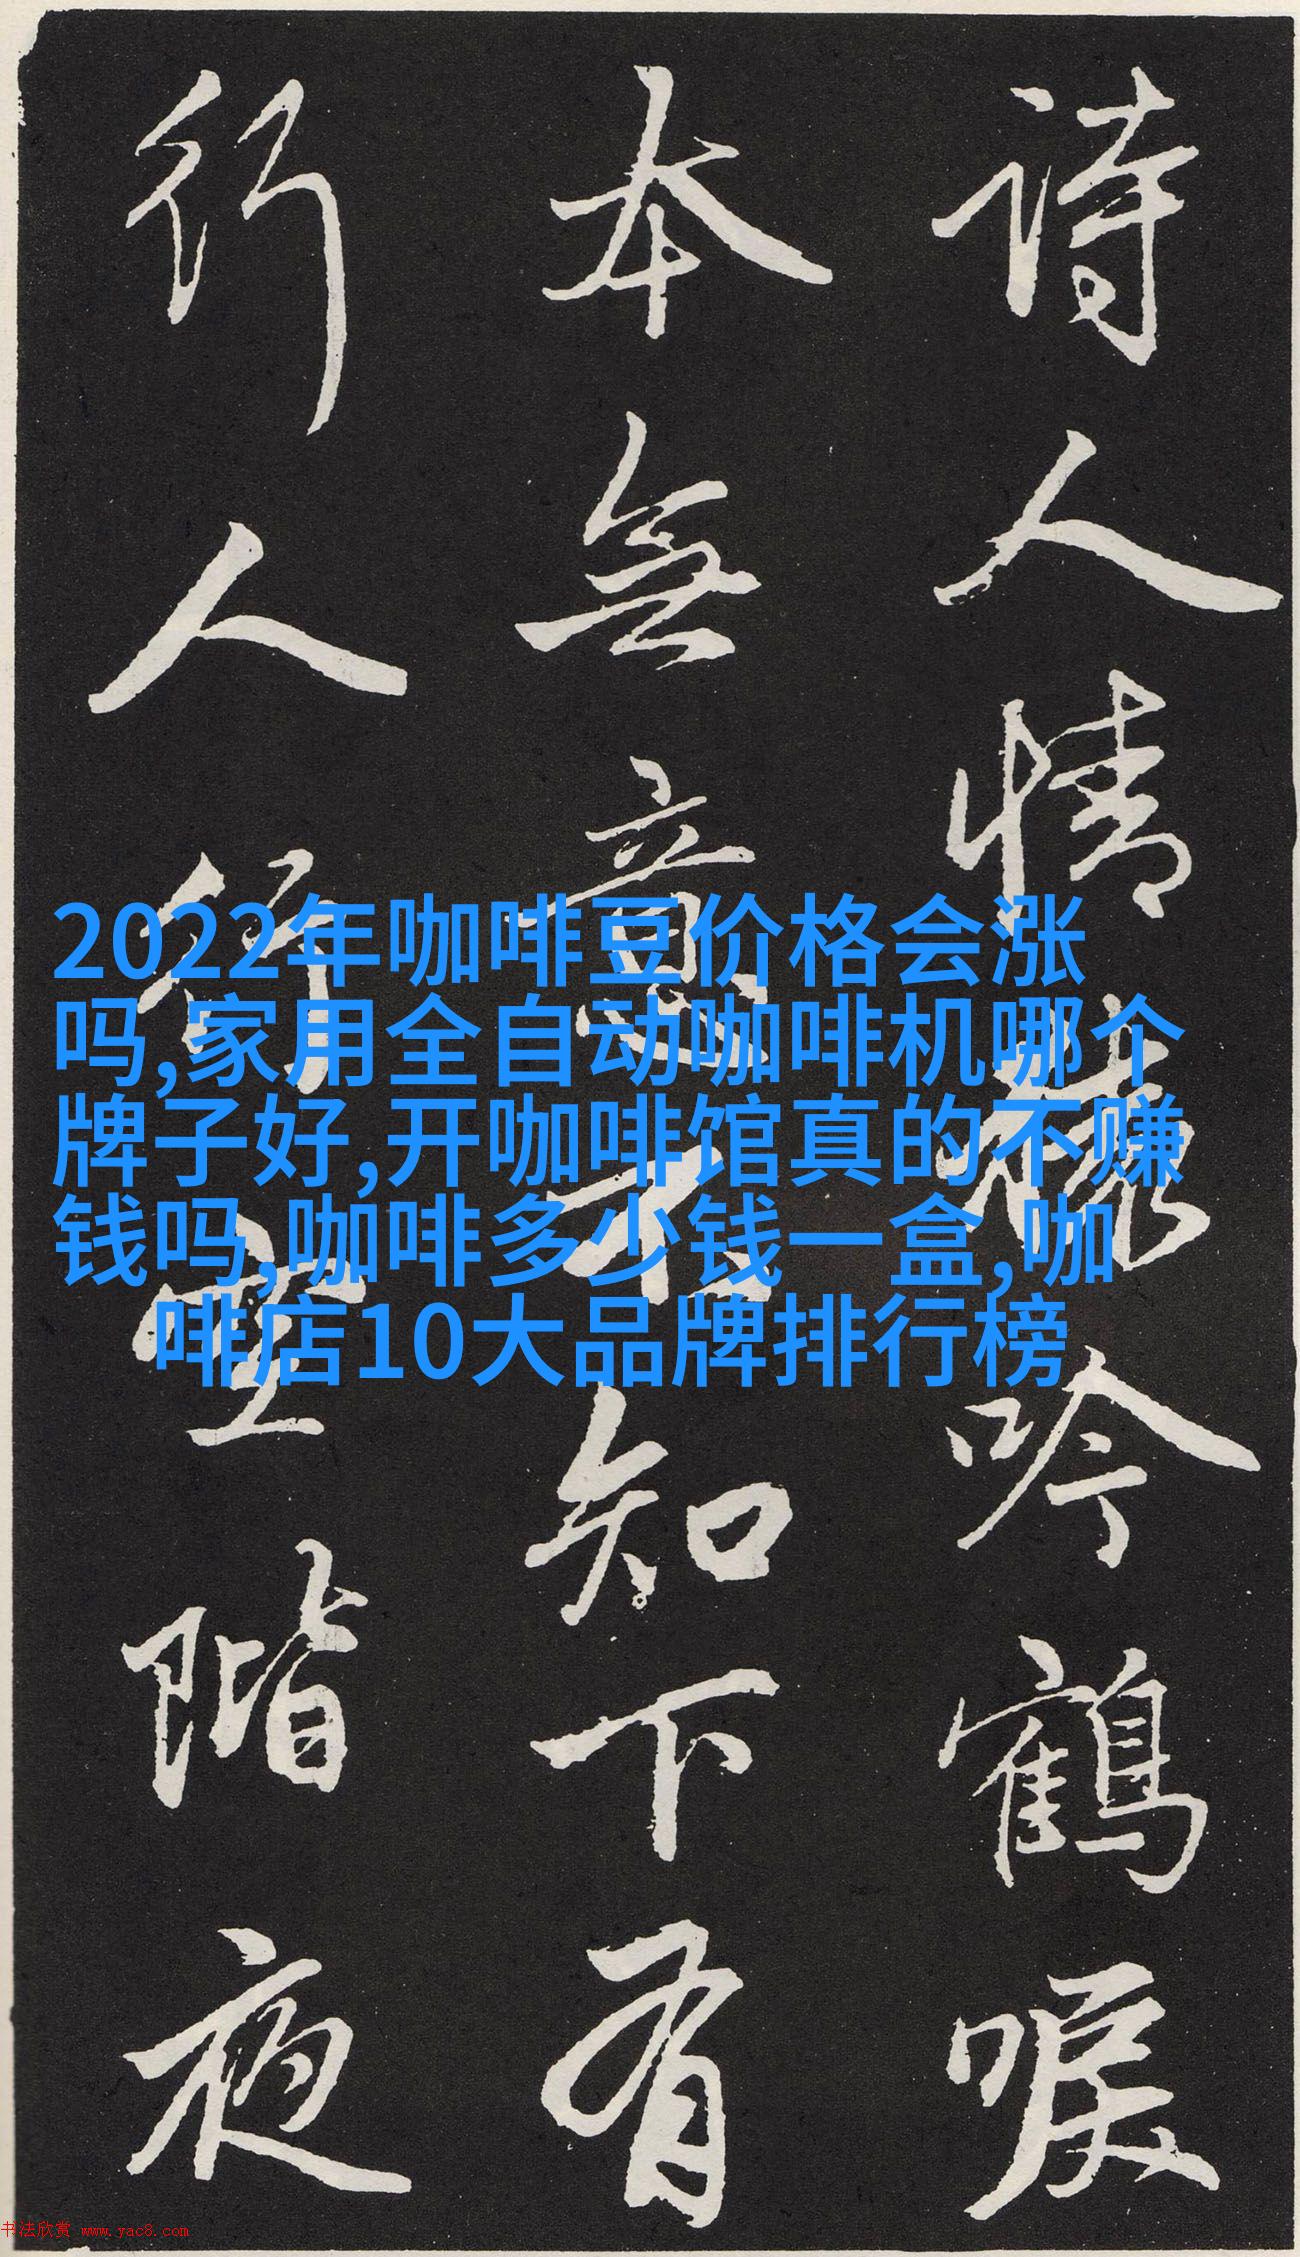 詩人情味吟鶴唳
本無意不知下有
行人行空階夜
2022年咖啡豆价格会涨
吗,家用全自动咖啡机哪个
牌子好,开咖啡馆真的不赚
钱吗,咖啡多少钱一盒,咖
啡店10大品牌排行榜
书法欣赏 www.yac8.com